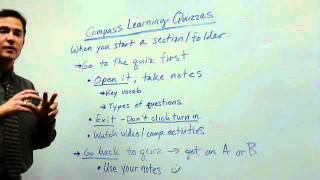 Compass Learning Quizzes
When you start a section/folder:
→ Go to the quiz first
• Open it, take notes
→ Key vocab
→ Types of questions
• Exit - Don't click turn in
• Watch video/comp activities
→ Go back to quiz → get an A or B
• Use your notes